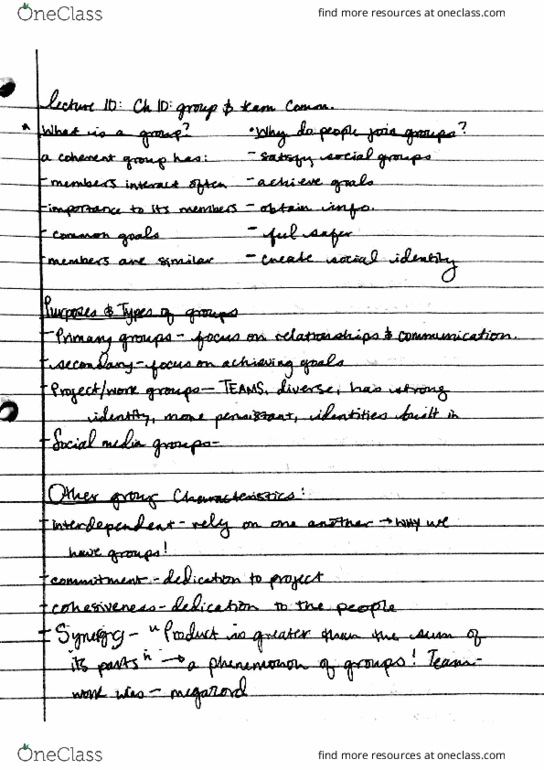 OneClass
find more resources at oneclass.com
Lecture 10: Ch 10: group & team Comm.
* What is a group? • Why do people join groups?
a coherent group has: - satisfy social groups
- members interact often - achieve goals
- importance to its members - obtain info.
- common goals - feel safer
- members are similar - create social identity
Purposes & Types of groups
- Primary groups - focus on relationships & communication.
- secondary - focus on achieving goals
- Project/work groups - TEAMS, diverse, has strong
identity, more persistant, identities built in
- Social media groups -
Other group Characteristics:
- interdependent - rely on one another → WHY we
have groups!
- commitment - dedication to project
- cohesiveness - dedication to the people
- Synergy - "Product is greater than the sum of
its parts" → a phenemonon of groups! Team-
work wins - megazord
OneClass
find more resources at oneclass.com